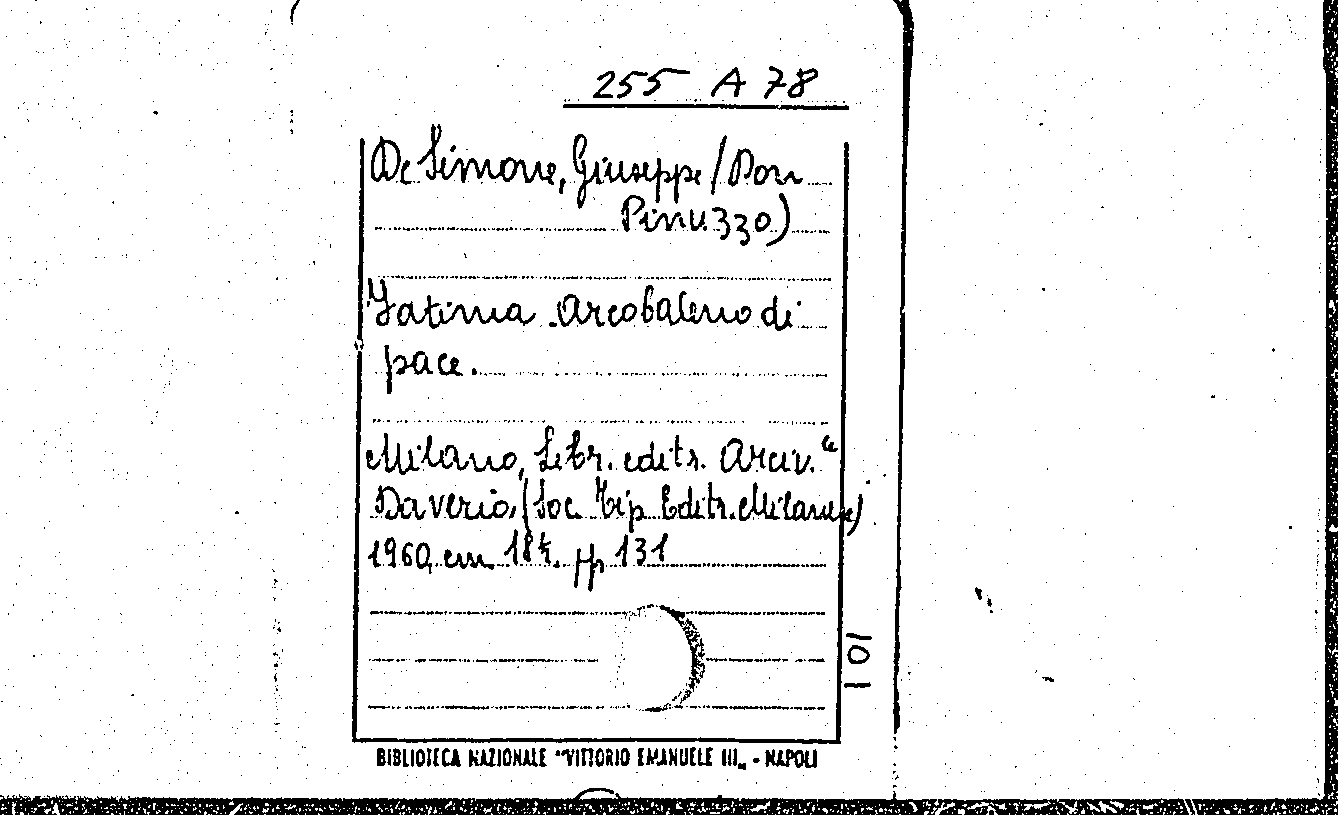 255 A 78
De Simone, Giuseppe (Don
Pinuzzo)
Fatima Arcobaleno di
pace.
Milano, Libr. editr. Arciv.le
Daverio, (Soc. Tip. Editr. Milanese)
1960, cm. 18½. pp 131
101
BIBLIOTECA NAZIONALE "VITTORIO EMANUELE III„ - NAPOLI